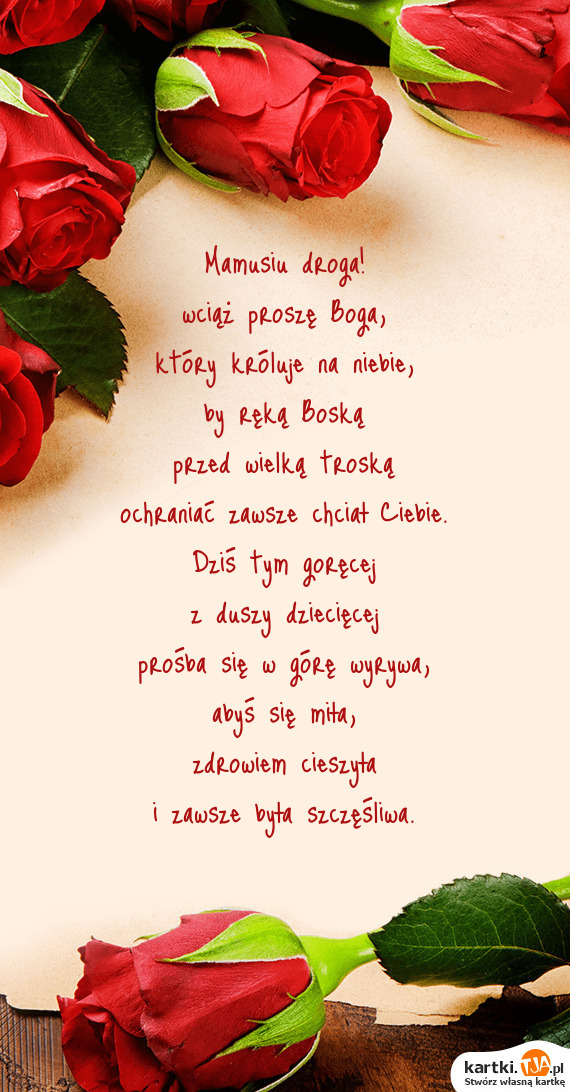 Mamusiu droga!
wciąż proszę Boga,
który króluje na niebie,
by ręką Boską
przed wielką troską
ochraniać zawsze chciał Ciebie.
Dziś tym goręcej
z duszy dziecięcej
prośba się w górę wyrywa,
abyś się miła,
zdrowiem cieszyła
i zawsze była szczęśliwa.
kartki.TJA.pl
Stwórz własną kartkę